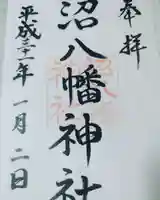 奉拝
沼八幡神社
平成三十一年一月二日